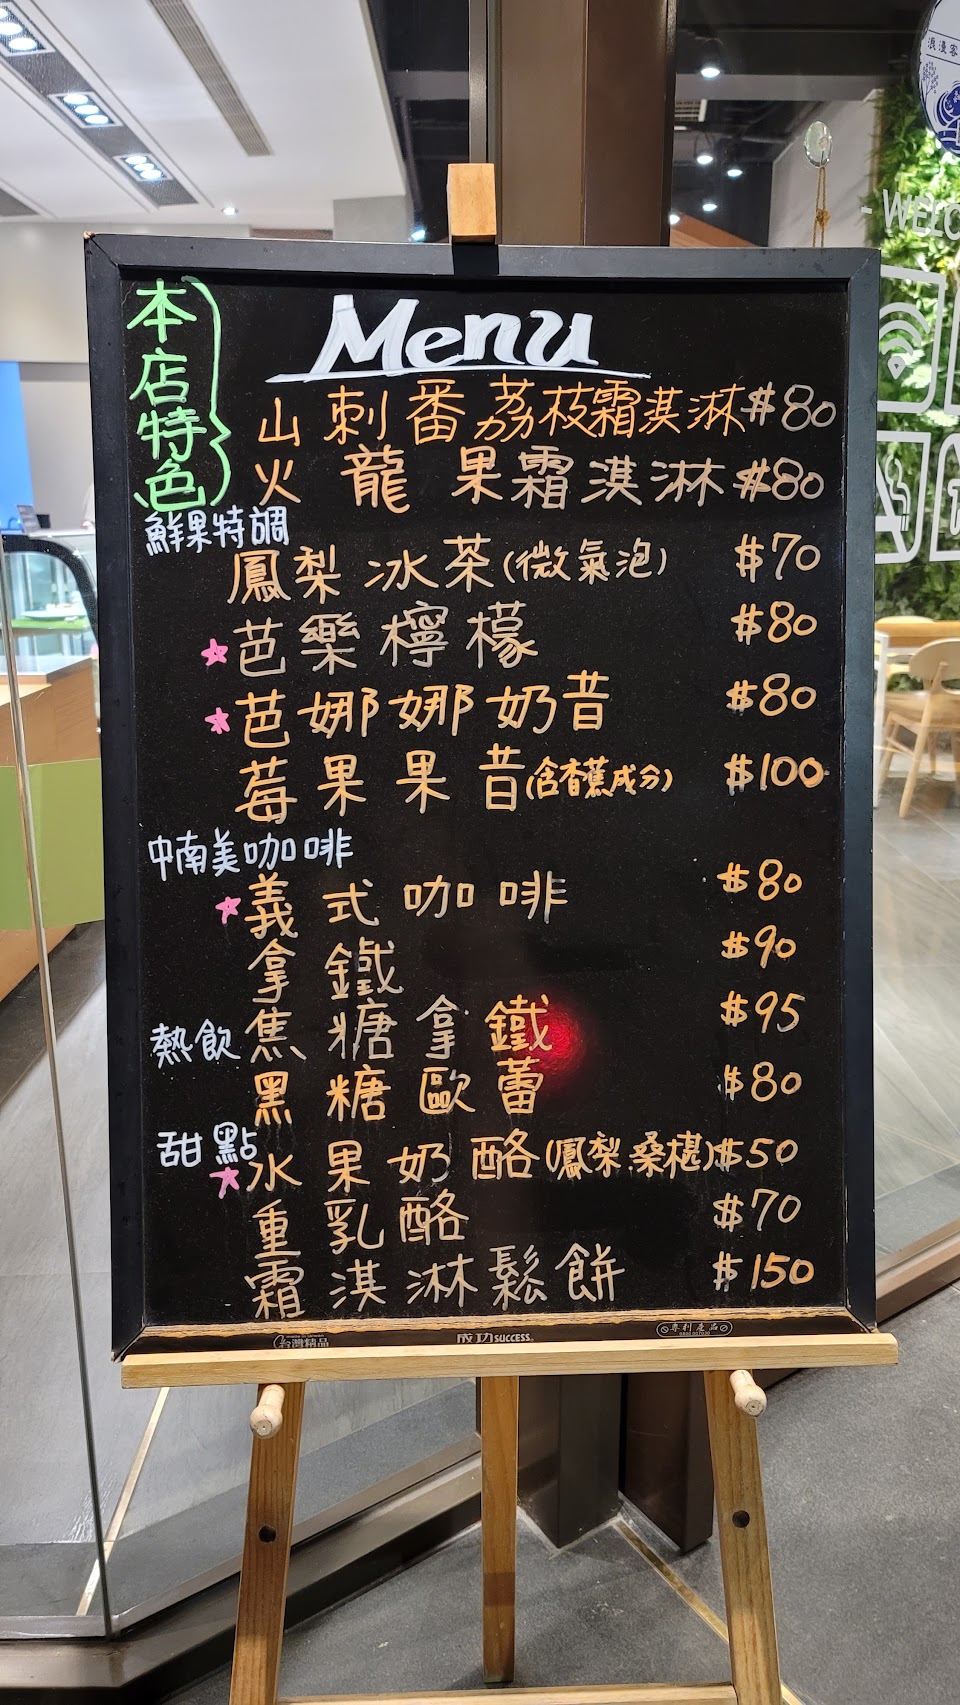 浪漫客
- WELCO
Menu
本店特色
山刺番荔枝霜淇淋 $80
火龍果霜淇淋 $80
鮮果特調
鳳梨冰茶(微氣泡) $70
芭樂檸檬 $80
芭娜娜奶昔 $80
莓果果昔(含香蕉成分) $100
中南美咖啡
義式咖啡 $80
拿鐵 $90
焦糖拿鐵 $95
熱飲
黑糖歐蕾 $80
甜點
水果奶酪(鳳梨.桑椹) $50
重乳酪 $70
霜淇淋鬆餅 $150
台灣精品
成功 SUCCESS
專利產品